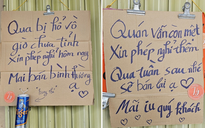 Qua bị hỏ vô
giờ chưa tỉnh
Xin phép nghỉ hôm nay
Mai bán bình thường
ạ
Quán vẫn còn mệt
Xin phép nghỉ thêm
Qua tuần sau nhé
sẽ bán lại ạ
Mãi iu quý khách